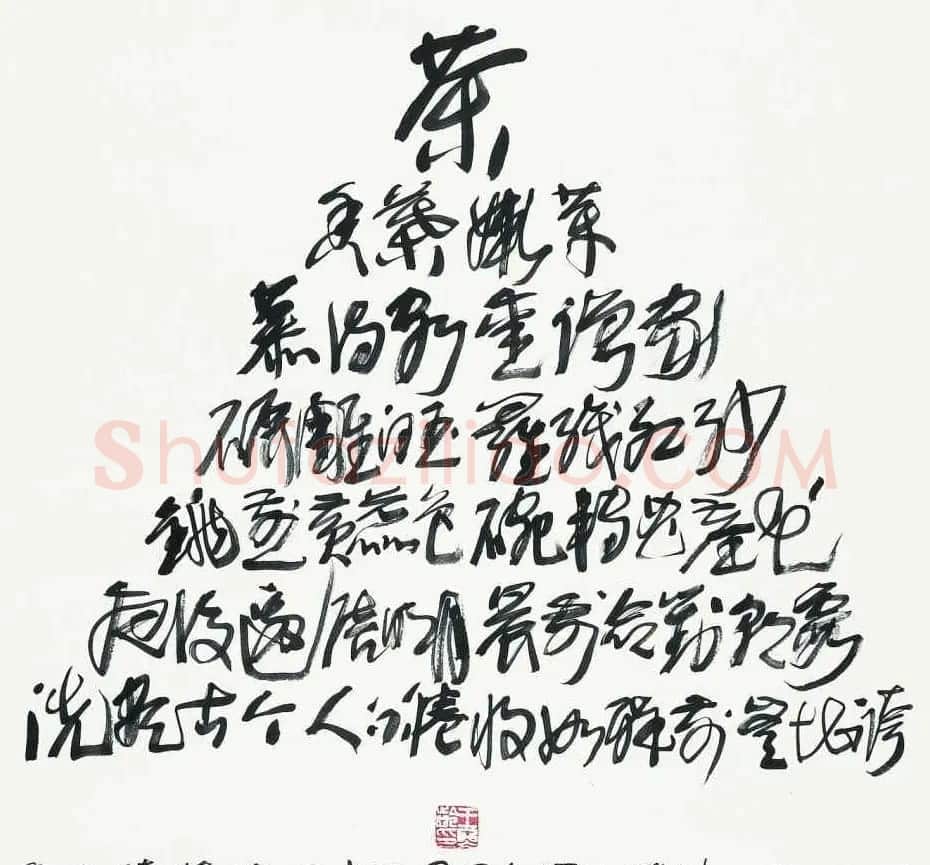 茶
香葉嫩芽
慕詩客愛僧家
碾雕白玉羅織紅紗
Shufaziliao.COM
銚煎黃蕊色碗轉曲塵花
夜後邀陪明月晨前命對朝霞
洗盡古今人不倦將知醉前豈堪誇